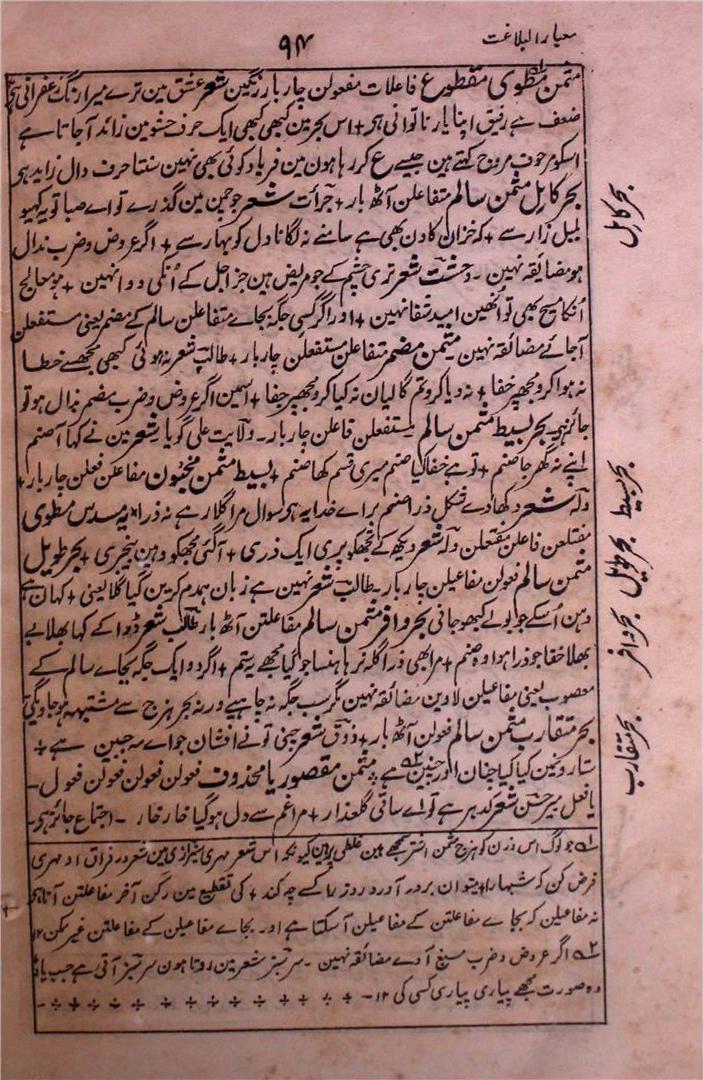 معیار البلاغت
۹۴
مثمن مطوی مقطوع فاعلات مفعولن چار بار رنگین شعر عشق مین ترے میرا رنگ زعفرانی ہے
ضعف ہے رفیق اپنا یار ناتوانی ہے + اس بحر مین کبھی کبھی ایک حرف حشو مین زائد آجاتا ہے
اسکو حرف مروح کہتے ہین جیسے ع کر رہا ہون مین فریاد کوئی بھی نہین سنتا حرف دال زاید ہے
بحر کامل مثمن سالم متفاعلن آٹھ بار + جرأت شعر جو چمن مین گذرے تو اے صبا تو یہ کہیو
بلبل زار سے + کہ خزان کا دن بھی ہے سامنے نہ لگانا دل کو بہار سے + اگر عروض و ضرب مذال
ہو مضائقہ نہین ۔ وحشت شعر تری چشم کے جو مریض ہین جز اجل کے اُنکی دوا نہین + ہو معالج
اُنکا مسیح بھی تو انھین امید شفا نہین + اور اگر کسی جگہ بجاے متفاعلن سالم کے مضمر یعنی مستفعلن
آجائے مضائقہ نہین مثمن مضمر متفاعلن مستفعلن چار بار + طالب شعر نہ ہوئی کبھی مجھسے خطا
نہ ہوا کرو مجھپر خفا + نہ دیا کرو تم گالیان نہ کیا کرو مجھپر جفا + اسمین اگر عروض و ضرب مضمر مذال ہو تو
جائز ہے بحر بسیط مثمن سالم مستفعلن فاعلن چار بار ۔ ولایت علی گویا شعر مین نے کہا آ صنم
اپنے نہ گھر جا صنم + تو ہے خفا کیا صنم میری قسم کھا صنم + بسیط مثمن مخبون مفاعلن فعلن چار بار +
ولہ شعر دکھادے شکل ذرا صنم براے خدا یہ ہے سوال مرا گلا رہے نہ ذرا مسدس مطوی
مفتعلن فاعلن مفتعلن ولہ شعر دیکھ کے تجھکو پری ایک ذری + آگئی مجھکو وہن پنجری + بحر طویل
مثمن سالم فعولن مفاعیلن چار بار ۔ طالب شعر نہین ہے زبان ہمدم کرین کیا گلا یعنی + کہان ہے
دہن اُسکے جو بولے کبھو جانی بحر وافر مثمن سالم مفاعلتن آٹھ بار طالب شعر ہوا کے کہا بھلا بے
بھلا خفا جو ذرا ہوا وہ صنم + مرا بھی ذرا گلہ نہ رہا ہنسا جو کیا مجھپے ستم + اگر دو ایک جگہ بجاے سالم کے
معصوب یعنی مفاعیلن لاوین مضائقہ نہین مگر سب جگہ نہ چاہیے ورنہ بحر ہزج سے مشتبہ ہو جاویگی
بحر متقارب مثمن سالم فعولن آٹھ بار + ذوق شعر چنی تونے افشان جو اے مہ جبین ہے +
ستارونمین کیا کیا چنان اور چنین ہے + مثمن مقصور یا محذوف فعولن فعولن فعولن فعول ۔
یا فعل میر حسن شعر کدہر ہے تو اے ساقی گلعذار + مرا غم سے دل ہو گیا خار خار ۔ اجتماع جائز ہے ۔
۱؎ جو لوگ اس وزن کو ہزج مثمن اشتر سمجھے ہین غلطی پر ہین کیونکہ اس شعر مہری شیرازی مین شعر در فراق او مہری
فرض کن کہ شبہا را + میتوان بروز آورد روز را کسے چہ کند + کی تقطیع مین رکن آخر مفاعلتن آتا ہے
نہ مفاعیلن کہ بجاے مفاعلتن کے مفاعیلن آ سکتا ہے اور بجاے مفاعیلن کے مفاعلتن غیر ممکن ۱۲
۲؎ اگر عروض و ضرب مسبغ آوے مضائقہ نہین ۔ سرسبز شعر مین روتا ہون سرسبز آتی ہے جب یاد
وہ صورت مجھے پیاری پیاری کسی کی ۱۲
بحر کامل
بحر بسیط
بحر طویل
بحر وافر
بحر متقارب